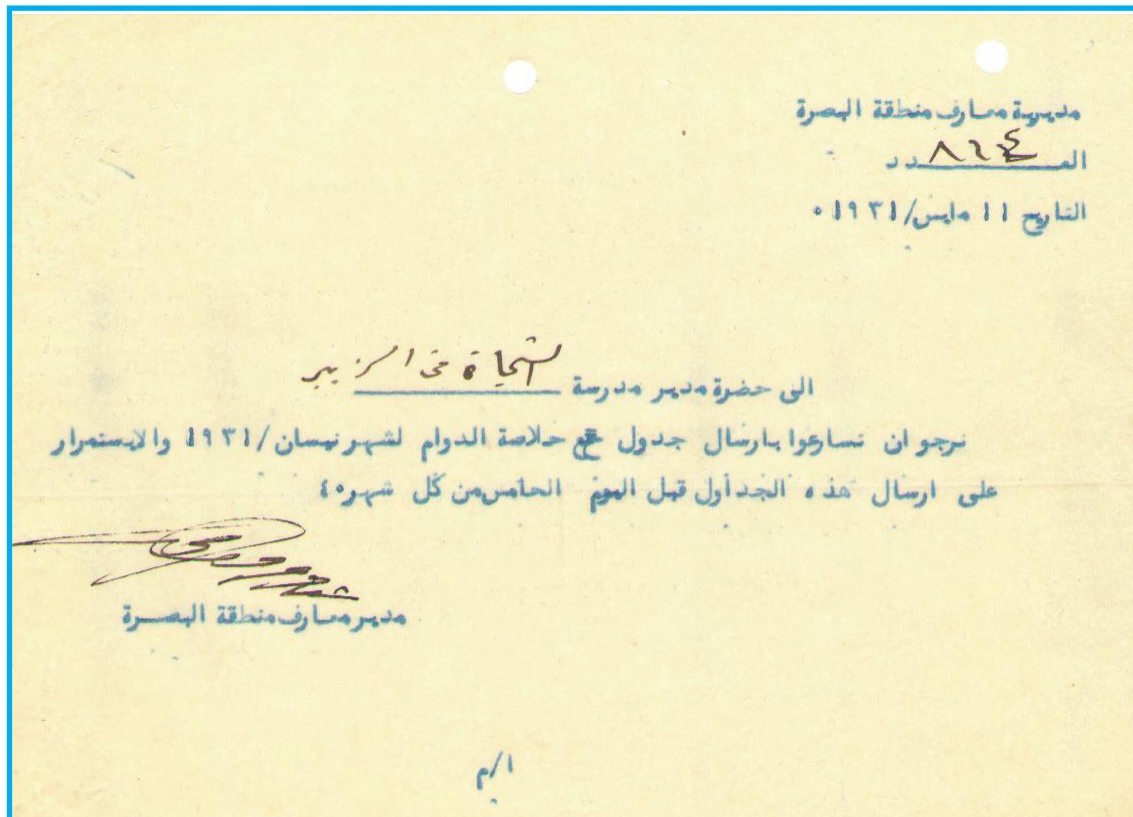 مديرية معارف منطقة البصرة
العـــدد ٨٦٤
التاريخ ١١ مايس/١٩٣١٠
الى حضرة مدير مدرسة النجاة في الزبير
نرجو ان تسارعوا بارسال جدول خلاصة الدوام لشهر نيسان/١٩٣١ والاستمرار
على ارسال هذه الجداول قبل اليوم الخامس من كل شهر٠٤
مدير معارف منطقة البصـرة
ا/م